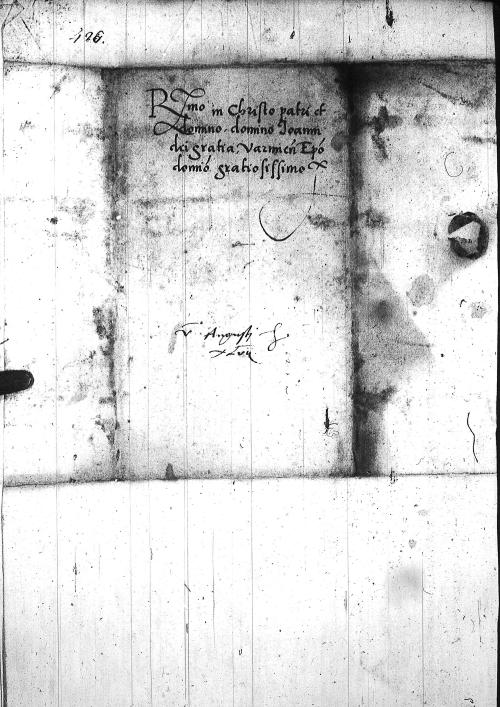 426.
Rmo in Christo patri et
domino domino Joanni
dei gratia Varmien Epo
domio gratiosissimo
v Augusti
xlvii